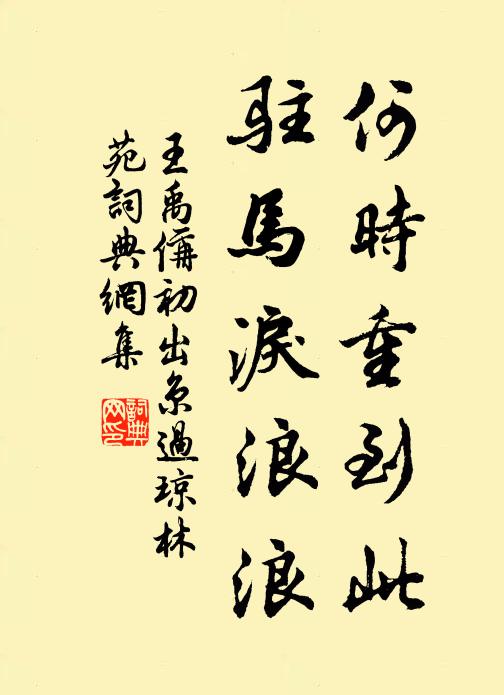 何時重到此
駐馬淚浪浪
王禹偁初出京過瓊林
苑詞典網集
詞典網印